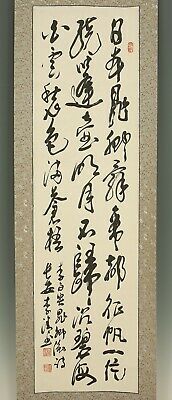 日本晁卿辭帝都征帆一片
繞蓬壺明月不歸沉碧海
白雲愁色滿蒼梧
李白哭晁卿衡詩
長安李書